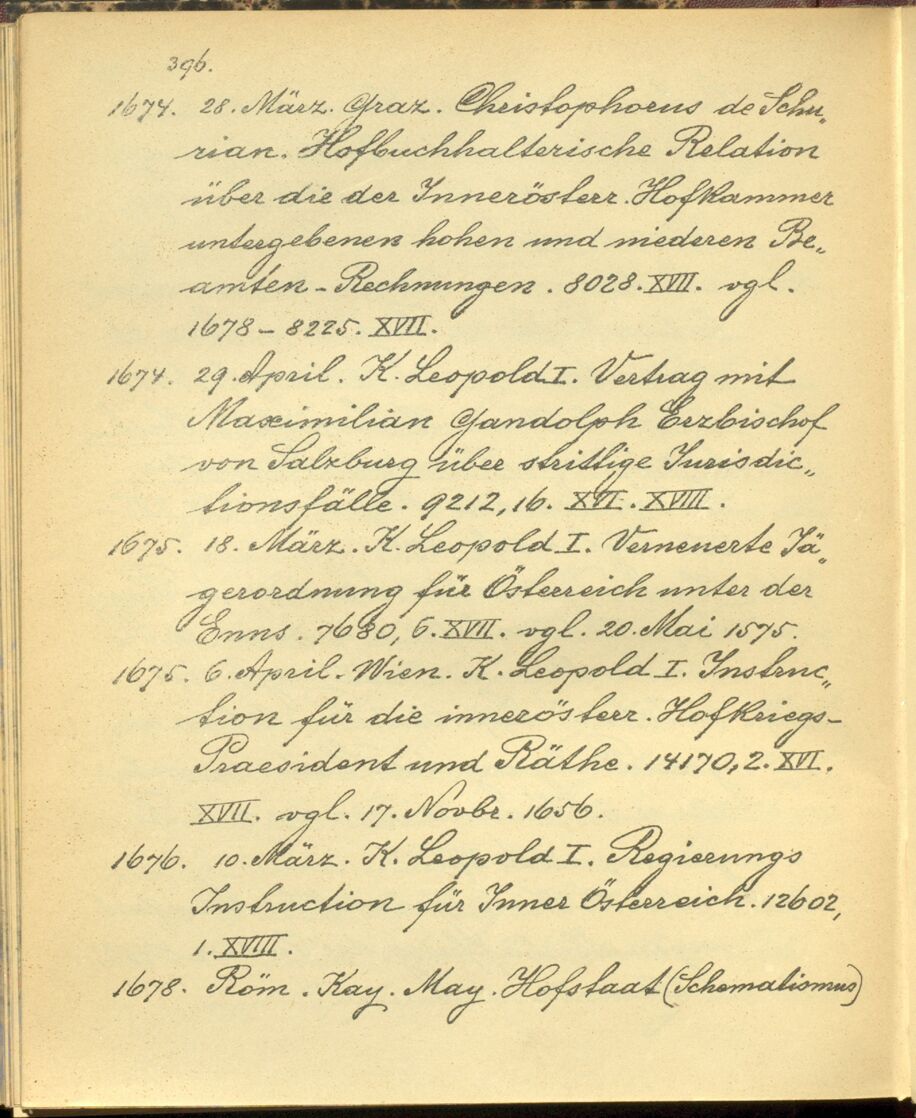 396.
1674. 28. März. Graz. Christophorus de Schu„
rian. Hofbuchhalterische Relation
über die der Innerösterr. Hofkammer
untergebenen hohen und niederen Be„
amten-Rechnungen. 8028. XVII. vgl.
1678-8225. XVII.
1674. 29. April. K. Leopold I. Vertrag mit
Maximilian Gandolph Erzbischof
von Salzburg über strittige Jurisdic„
tionsfälle. 9212, 16. XVI. XVIII.
1675. 18. März. K. Leopold I. Verneuerte Jä„
gerordnung für Österreich unter der
Enns. 7680, 6. XVII. vgl. 20. Mai 1575.
1675. 6. April. Wien. K. Leopold I. Instruc„
tion für die innerösterr. Hofkriegs-
Praesident und Räthe. 14170, 2. XVI.
XVII. vgl. 17. Novbr. 1656.
1676. 10. März. K. Leopold I. Regierungs
Instruction für Inner Österreich. 12602,
1. XVIII.
1678. Röm. Kay. May. Hofstaat (Schematismus)